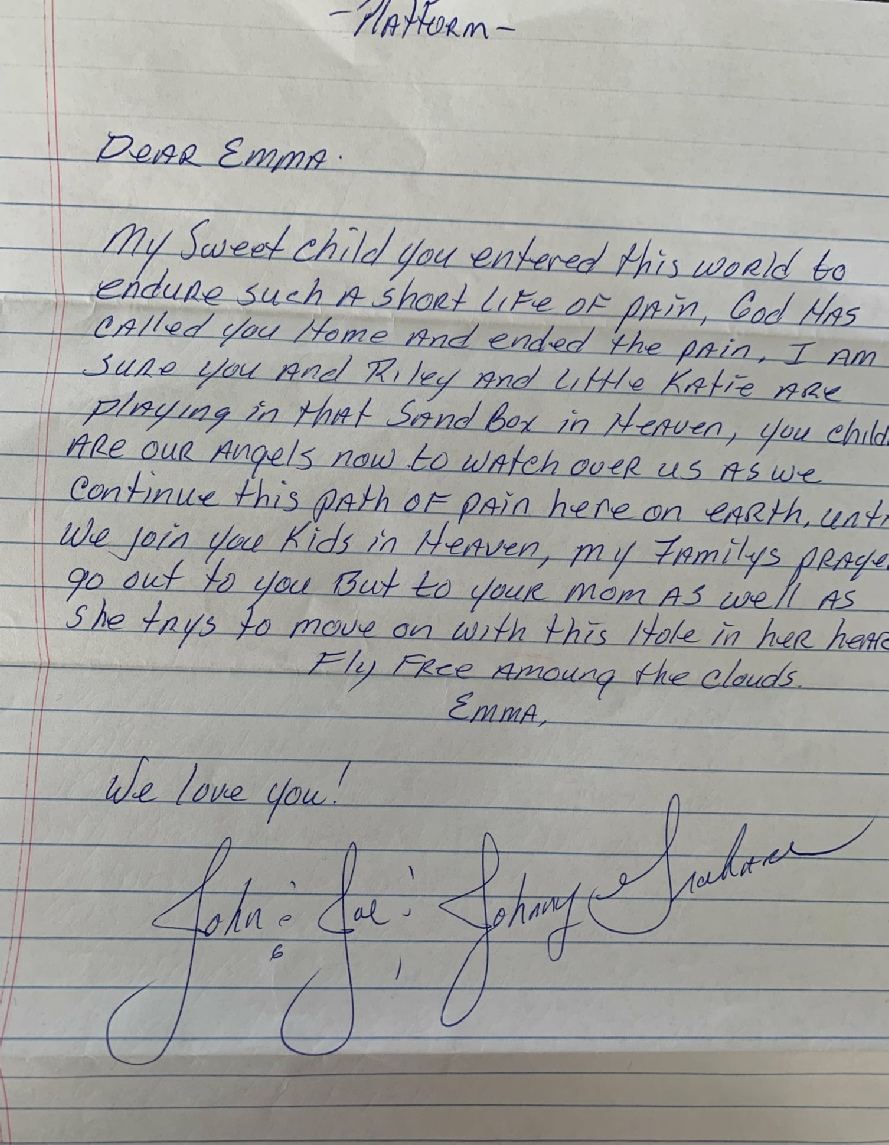 -Platform-
Dear Emma.
My Sweet child you entered this world to
endure such a short life of pain, God has
called you Home and ended the pain, I am
sure you and Riley and little Katie are
playing in that sand box in Heaven, you child
are our angels now to watch over us as we
continue this path of pain here on earth, unti
We join you kids in Heaven, my familys praye
go out to you But to your mom as well as
she trys to move on with this Hole in her hear
Fly Free amoung the clouds.
Emma,
We love you!
John Joe Johnny